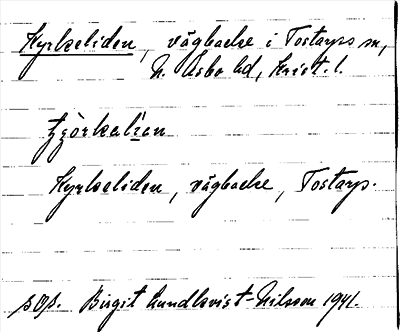 Kyrkeliden, vägbacke i Tostarps sn,
N. Åsbo hd, Krist. l.
Kyrkeliden, vägbacke, Tostarp.
Birgit Lundkvist-Nilsson 1941.